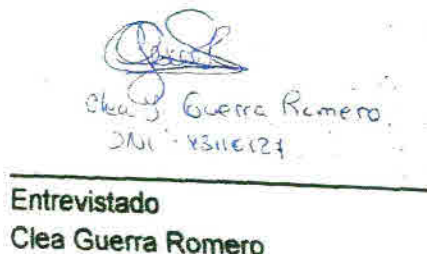 Clea Guerra Romero
DNI
Entrevistado
Clea Guerra Romero